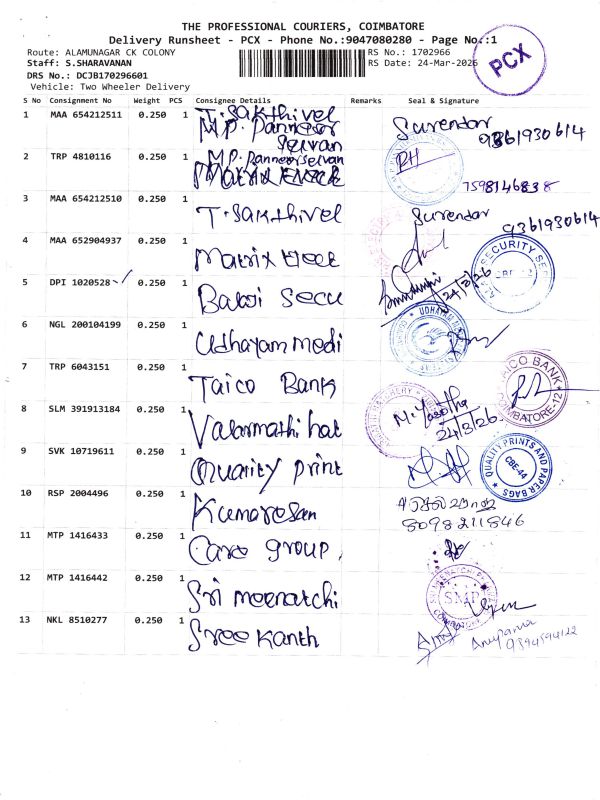 THE PROFESSIONAL COURIERS, COIMBATORE
Delivery Runsheet - PCX - Phone No.:9047080280 - Page No.:1
PCX
Route: ALAMUNAGAR CK COLONY
RS No.: 1702966
Staff: S.SHARAVANAN
RS Date: 24-Mar-2026
DRS No.: DCJB170296601
Vehicle: Two Wheeler Delivery
S No Consignment No Weight PCS Consignee Details Remarks Seal & Signature
1 MAA 654212511 0.250 1 T.Sakthivel Surendar 9361930614
M.P. Panneer
Selvan
2 TRP 4810116 0.250 1 M.P. Panneerselvan
Matrix
7598146838
3 MAA 654212510 0.250 1 T.Sakthivel Surendar 9361930614
4 MAA 652904937 0.250 1 Matrix
SECURITY SER
5 DPI 1020528 0.250 1 Balaji Secu 24/3/26
6 NGL 200104199 0.250 1 Udhayam medi
UDHAYAM
7 TRP 6043151 0.250 1 Taico Bank
TAICO BANK
COIMBATORE-12
8 SLM 391913184 0.250 1 Valarmathi hat M.Yasotha
24/3/26
9 SVK 10719611 0.250 1 Quality print
QUALITY PRINTS AND PAPER BAGS
CBE-44
10 RSP 2004496 0.250 1 Kumaresan
8098211846
11 MTP 1416433 0.250 1 Care group.
12 MTP 1416442 0.250 1 Sri meenatchi
SMP
13 NKL 8510277 0.250 1 Sree Kanth Anupama
9894594122